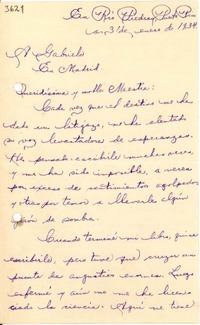 3629
En Río Piedras, Puerto Rico
a 31 de enero de 1934.
A Gabriela
En Madrid
Queridísima y noble Maestra:
Cada vez que el destino me ha
dado un latigazo, me ha alentado
su voz levantadora de esperanzas.
He pensado escribirle muchas veces
y me ha sido imposible, a veces
por exceso de sentimientos agolpados
y otras por temor a llevarle algún
jirón de sombra.
Cuando terminé mi libro, quise
escribirle, pero tuve que cruzar un
puente de angustias enormes. Luego
enfermé y aún no me ha licen-
ciado la ciencia. Aquí me tiene